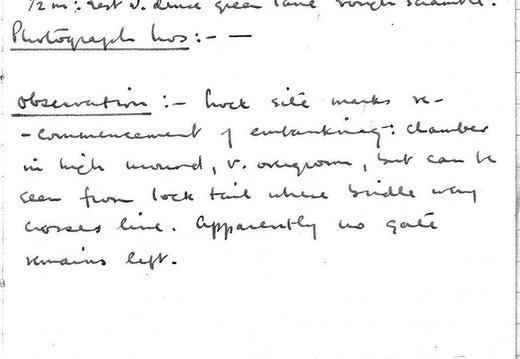 1/2 m: rest v. dense green lane rough scramble.
Photograph nos:- —
Observation:- Lock site marks re-
-commencement of embanking: chamber
in high mound, v. overgrown, but can be
seen from lock tail where bridle way
crosses line. Apparently no gate
remains left.